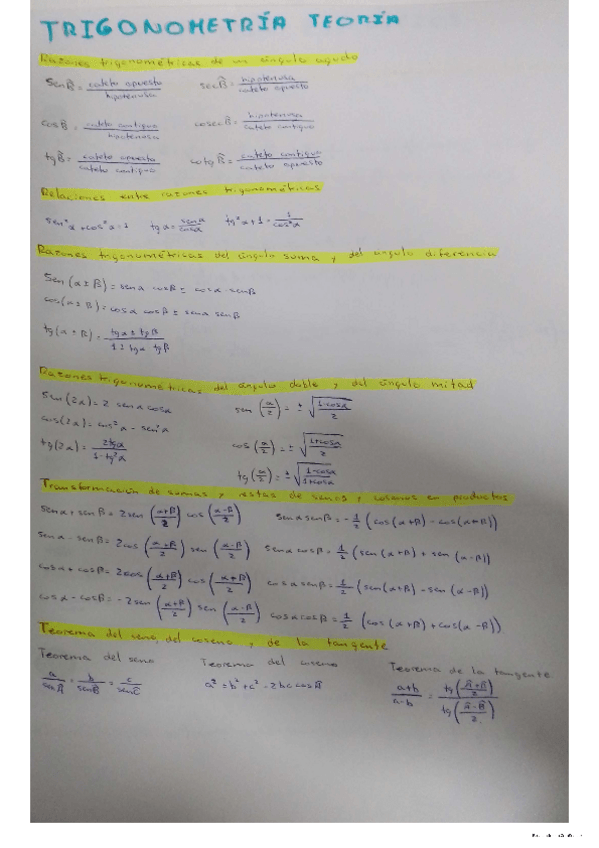 TRIGONOMETRÍA TEORÍA
Razones trigonométricas de un ángulo agudo
sen B̂ = cateto opuesto / hipotenusa    sec B̂ = hipotenusa / cateto opuesto
cos B̂ = cateto contiguo / hipotenusa    cosec B̂ = hipotenusa / cateto contiguo
tg B̂ = cateto opuesto / cateto contiguo    cotg B̂ = cateto contiguo / cateto opuesto
Relaciones entre razones trigonométricas
sen²α + cos²α = 1    tg α = sen α / cos α    tg²α + 1 = 1 / cos²α
Razones trigonométricas del ángulo suma y del ángulo diferencia
Sen (α ± β) = sen α cos β ± cos α · sen β
cos (α ± β) = cos α cos β ± sen α sen β
tg (α ± β) = tg α ± tg β / 1 ± tg α · tg β
Razones trigonométricas del ángulo doble y del ángulo mitad
Sen (2α) = 2 sen α cos α    sen (α/2) = ± √(1-cos α / 2)
cos (2α) = cos²α - sen²α    cos (α/2) = ± √(1+cos α / 2)
tg (2α) = 2tg α / 1 - tg²α    tg (α/2) = ± √(1-cos α / 1+cos α)
Transformación de sumas y restas de senos y cosenos en productos
sen α + sen β = 2 sen (α+β / 2) cos (α-β / 2)    sen α sen β = -1/2 (cos (α+β) - cos (α+β))
sen α - sen β = 2 cos (α+β / 2) sen (α-β / 2)    sen α cos β = 1/2 (sen (α+β) + sen (α-β))
cos α + cos β = 2 cos (α+β / 2) cos (α+β / 2)    cos α sen β = 1/2 (sen (α+β) - sen (α-β))
cos α - cos β = -2 sen (α+β / 2) sen (α-β / 2)    cos α cos β = 1/2 (cos (α+β) + cos (α-β))
Teorema del seno, del coseno y de la tangente
Teorema del seno    Teorema del coseno    Teorema de la tangente
a / sen Â = b / sen B̂ = c / sen Ĉ    a² = b² + c² - 2bc cos Â    a+b / a-b = tg (Â+B̂ / 2) / tg (Â-B̂ / 2)